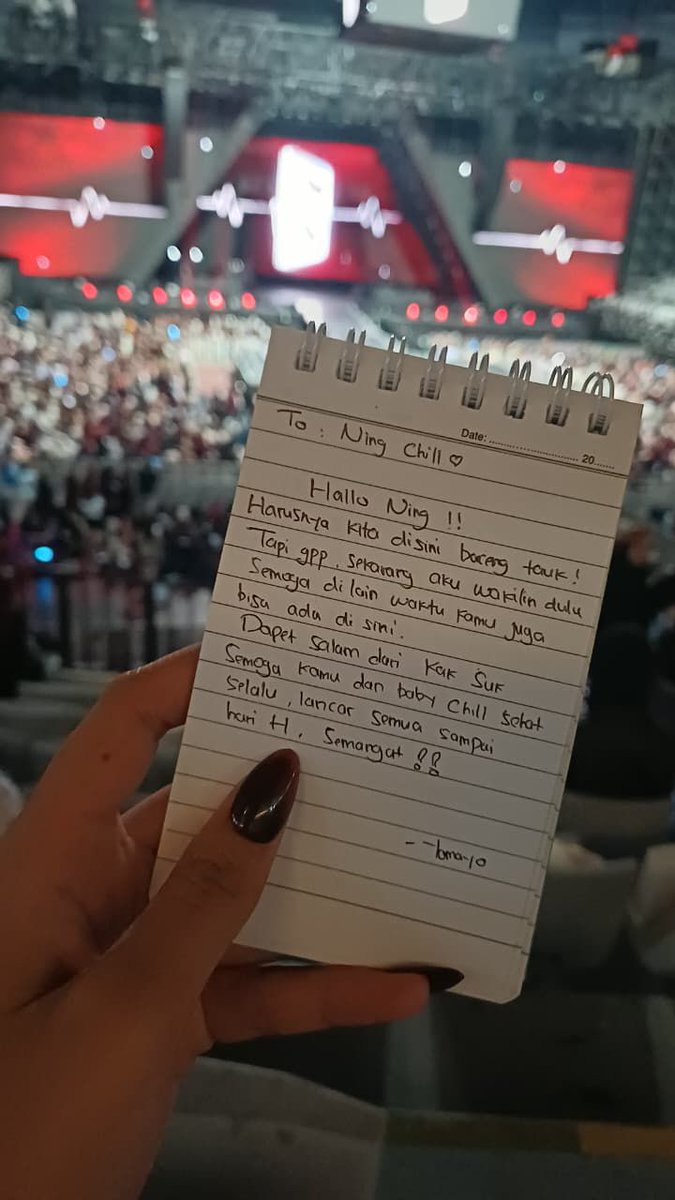 Date: ........................ 20.......
To : Ning Chill ♡
Hallo Ning !!
Harusnya kita disini bareng tauk!
Tapi gpp, sekarang aku wakilin dulu
Semoga di lain waktu kamu juga
bisa ada di sini.
Dapet salam dari Kak Suk
Semoga kamu dan baby Chill sehat
Selalu, lancar semua sampai
hari H. Semangat !!
-- Tomayo